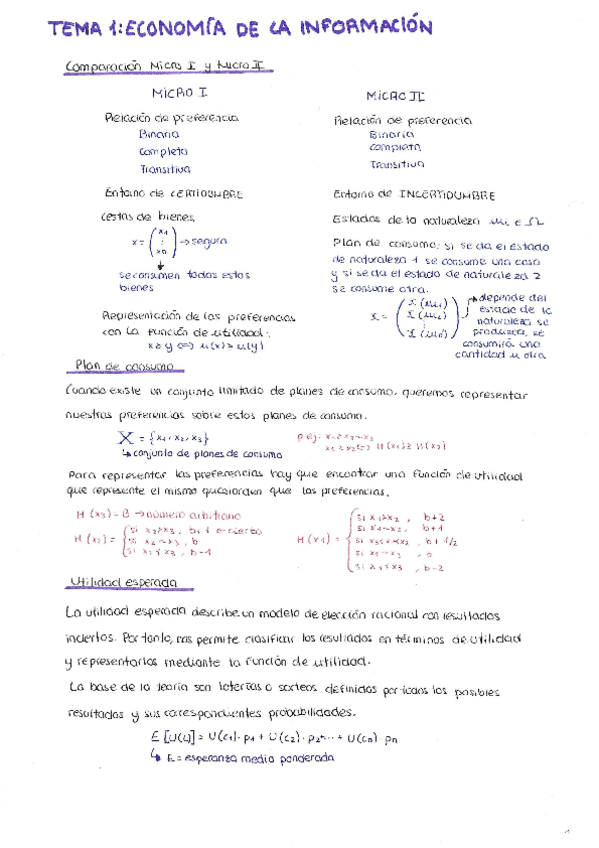 TEMA 1: ECONOMÍA DE LA INFORMACIÓN
Comparación Micro I y Micro II
MICRO I
Relación de preferencia
Binaria
Completa
Transitiva
Entorno de CERTIDUMBRE
Cestas de bienes
x = (x1 ⋮ xn) → segura
se consumen todos estos
bienes
Representación de las preferencias
con la función de utilidad:
MICRO II
Relación de preferencia
Binaria
Completa
Transitiva
Entorno de INCERTIDUMBRE
Estados de la naturaleza
Plan de consumo: si se da el estado
de naturaleza 1 se consume una cosa
y si se da el estado de naturaleza 2
se consume otra.
depende del
estado de la
naturaleza se
produzca, se
consumirá una
cantidad u otra
Plan de consumo
Cuando existe un conjunto limitado de planes de consumo, queremos representar
nuestras preferencias sobre estos planes de consumo.
X = {x1, x2, x3}
↳ conjunto de planes de consumo
Para representar las preferencias hay que encontrar una función de utilidad
que represente el mismo quasiorden que las preferencias.
H(x3) = B → número arbitrario
H(x2) =
H(x1) =
Utilidad esperada
La utilidad esperada describe un modelo de elección racional con resultados
inciertos. Por tanto, nos permite clasificar los resultados en términos de utilidad
y representarlos mediante la función de utilidad.
La base de la teoría son loterías o sorteos definidos por todos los posibles
resultados y sus correspondientes probabilidades.
E [U(L)] = U(c1)·p1 + U(c2)·p2 ... + U(cn)·pn
↳ E = esperanza media ponderada